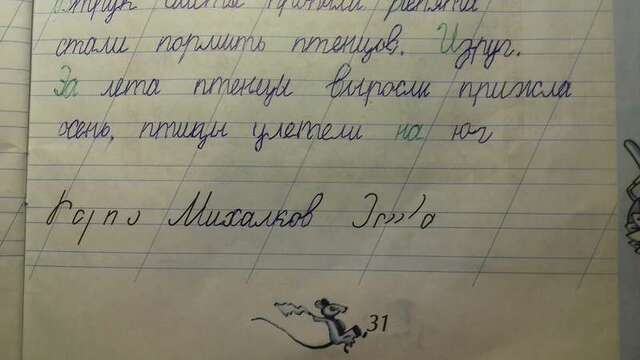 стали пормить птенцов. Издруг.
За лета птенци выросли прижла
жень, птицы улетели на юг
Михалков
31